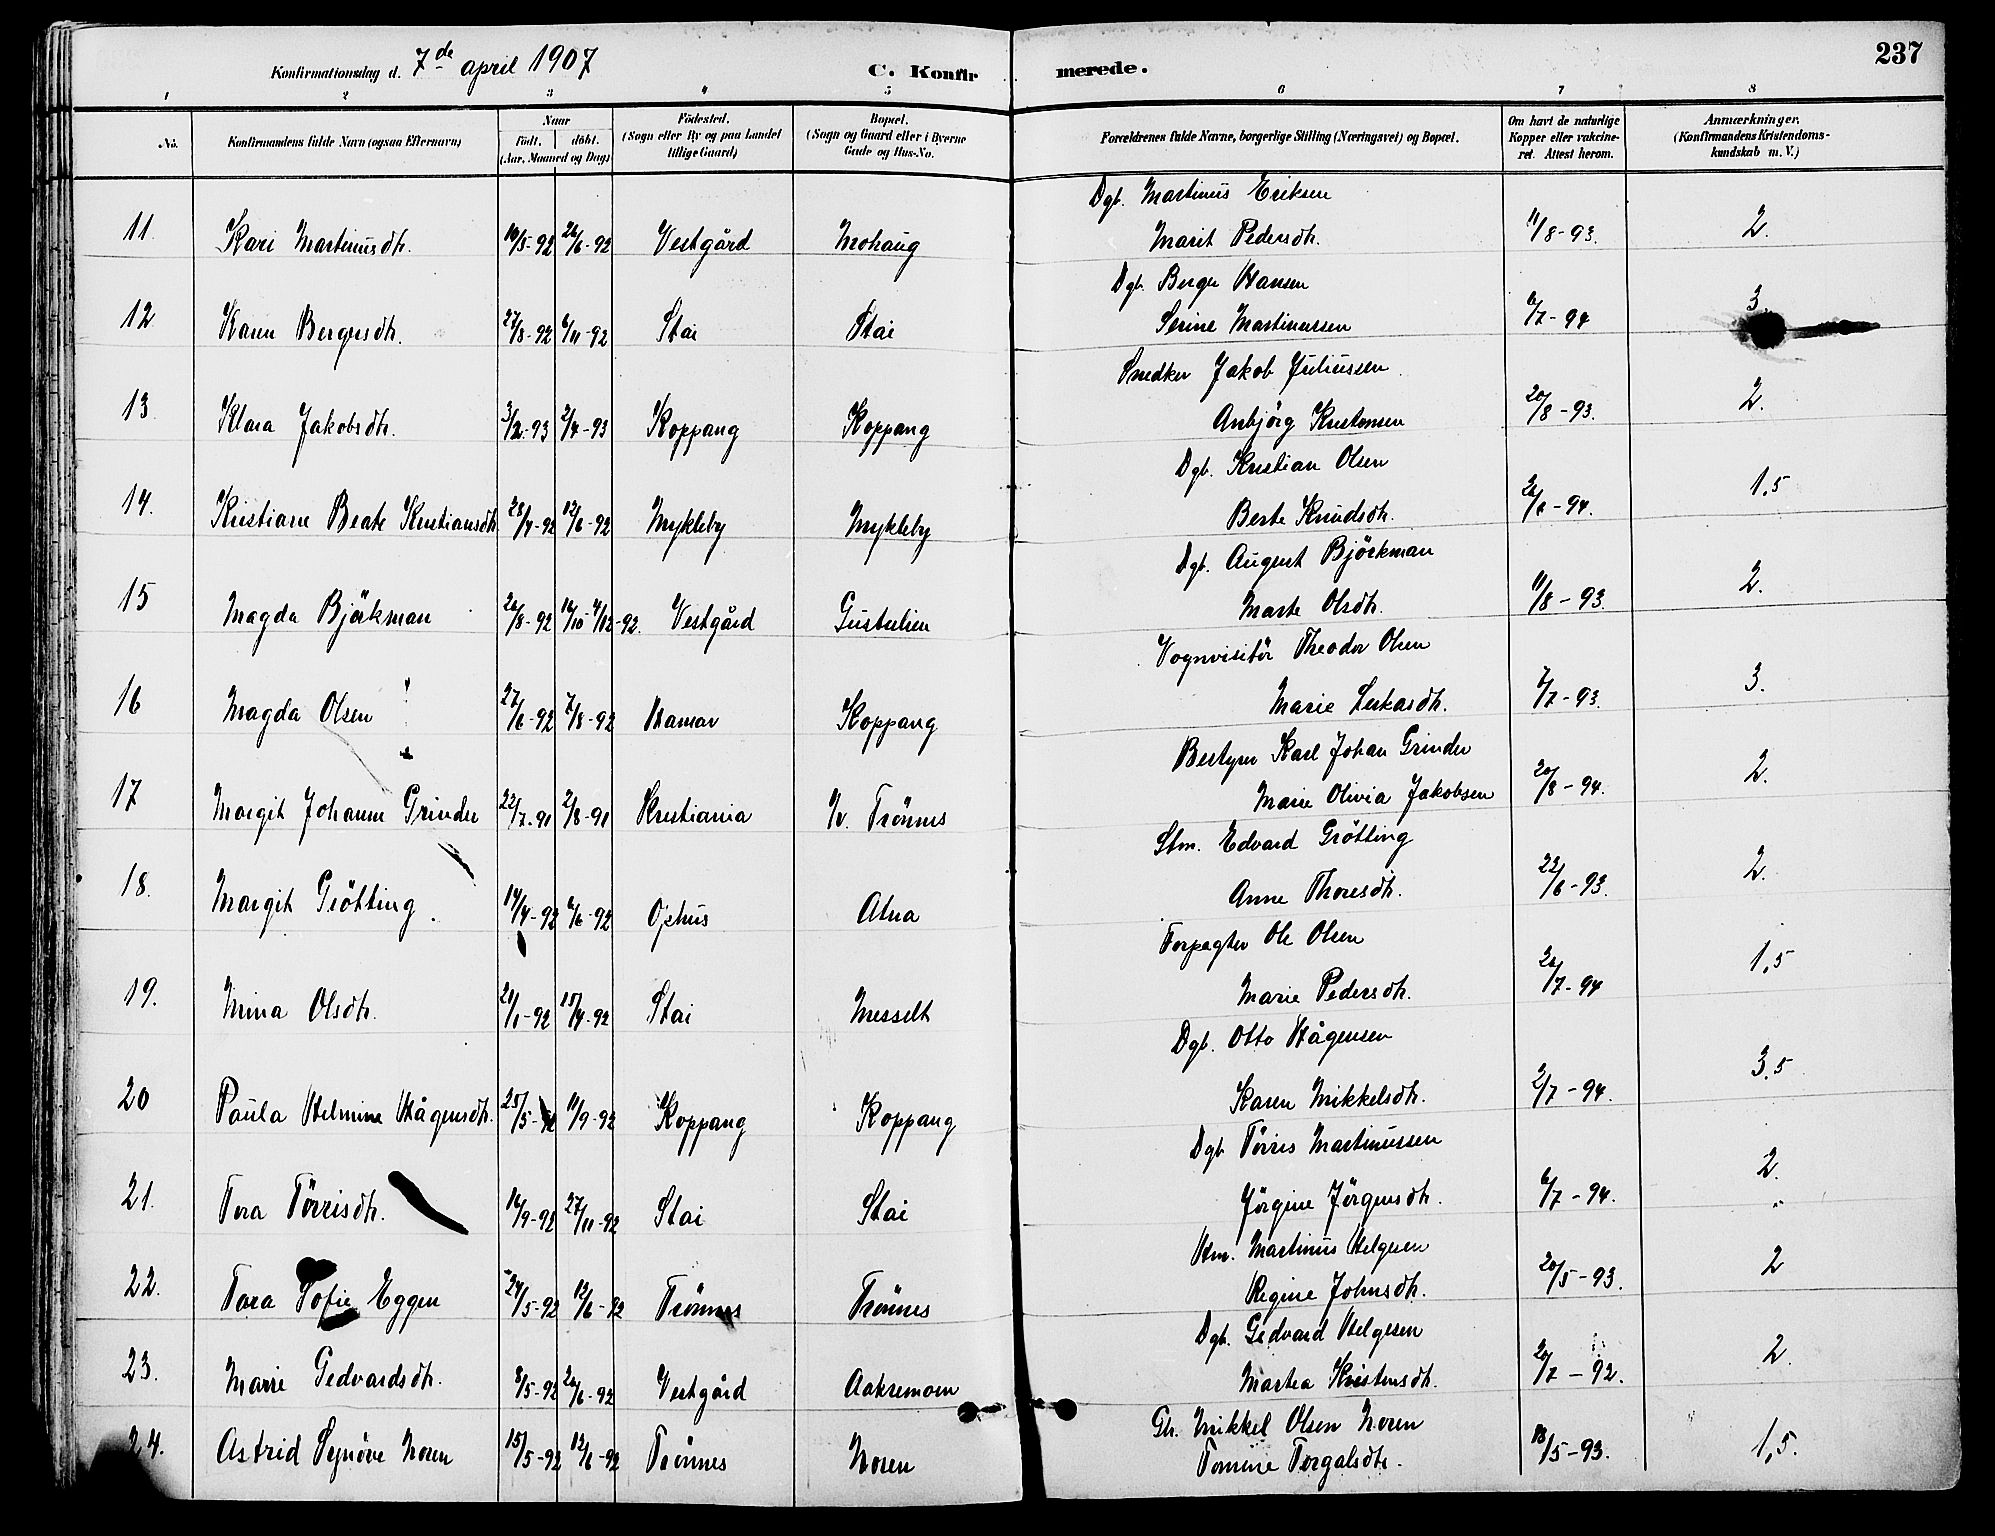 Konfirmationsdag d. 7de april 1907 C. Konfirmerede. 237
1 2 3 4 5 6 7 8
No. Konfirmandens fulde Navn (ogsaa Efternavn) Naar Födt. döbt. (Aar, Maaned og Dag) Födested. (Sogn eller By og paa Landet tillige Gaard) Bopæl. (Sogn og Gaard eller i Byerne Gade og Hus-No. Forældrenes fulde Navne, borgerlige Stilling (Næringsvei) og Bopæl. Om havt de naturlige Kopper eller vakcineret. Attest herom. Anmærkninger. (Konfirmandens Kristendomskundskab m. V.)
Dgb. Martinus Eriksen
11. Kari Martinusdtr. 10/5-92 26/6-92 Vestgård Mohaug Marit Pedersdtr. 11/8-93. 2.
Dgb. Berger Hansen
12 Karen Bergersdtr. 27/8-92 6/11-92 Stai Stai Serine Martinussen 6/7-94 3.
Snedker Jakob Juliussen
13. Klara Jakobsdtr. 3/12-93 2/4-93 Koppang Koppang Anbjörg Kristensen 20/8-93. 2.
Dgb. Kristian Olsen
14. Kristiane Beate Kristiansdtr. 28/4-92 12/6-92 Mykleby Mykleby Berte Knudsdtr. 26/6-94. 1.5
Dgb. August Björkman
15 Magda Björkman 26/8-92 16/10-4/12-92. Vestgård Gustulien Marte Olsdtr. 11/8-93 2.
Vognvisitör Theodor Olsen
16 Magda Olsen 27/6-92 7/8-92 Hamar Koppang Marie Lukasdtr. 7/7-93. 3.
Bestyrer Karl Johan Grinder
17 Margit Johanne Grinder 22/7-91 2/8-91 Kristiania N. Trönnes Marie Olivia Jakobsen 20/8-94. 2.
Stm. Edvard Grötting
18. Margit Grötting. 14/4-92 6/6-92 Ophus Atna Anne Thoresdtr. 22/6-93. 2.
Forpagter Ole Olsen
19. Mina Olsdtr. 21/1-92 15/4-92 Stai Messelt Marie Pedersdtr. 26/7-94 1,5
Dgb. Otto Hågensen
20 Paula Helmine Hågensdtr. 25/5-92 11/9-92 Koppang Koppang Karen Mikkelsdtr. 2/7-94. 3.5
Dgb Törris Martinussen
21. Tora Törrisdtr. 16/9-92 27/11-92 Stai Stai Jörgine Jörgensdtr. 6/7-94. 2.
Hm. Martinus Helgesen
22. Tora Sofie Eggen 24/5-92 12/6-92 Trönnes Trönnes Regine Johnsdtr. 20/5-93. 2
Dgb. Gedvard Helgesen
23. Marie Gedvardsdtr. 8/5-92 26/6-92 Vestgård Aakremoen Martea Kristensdtr. 20/7-92. 2.
Gb. Mikkel Olsen Noren
24. Astrid Synöve Noren 15/5-92 12/6-92 Trönnes Noren Tomine Torgalsdtr. 18/5-93. 1,5.